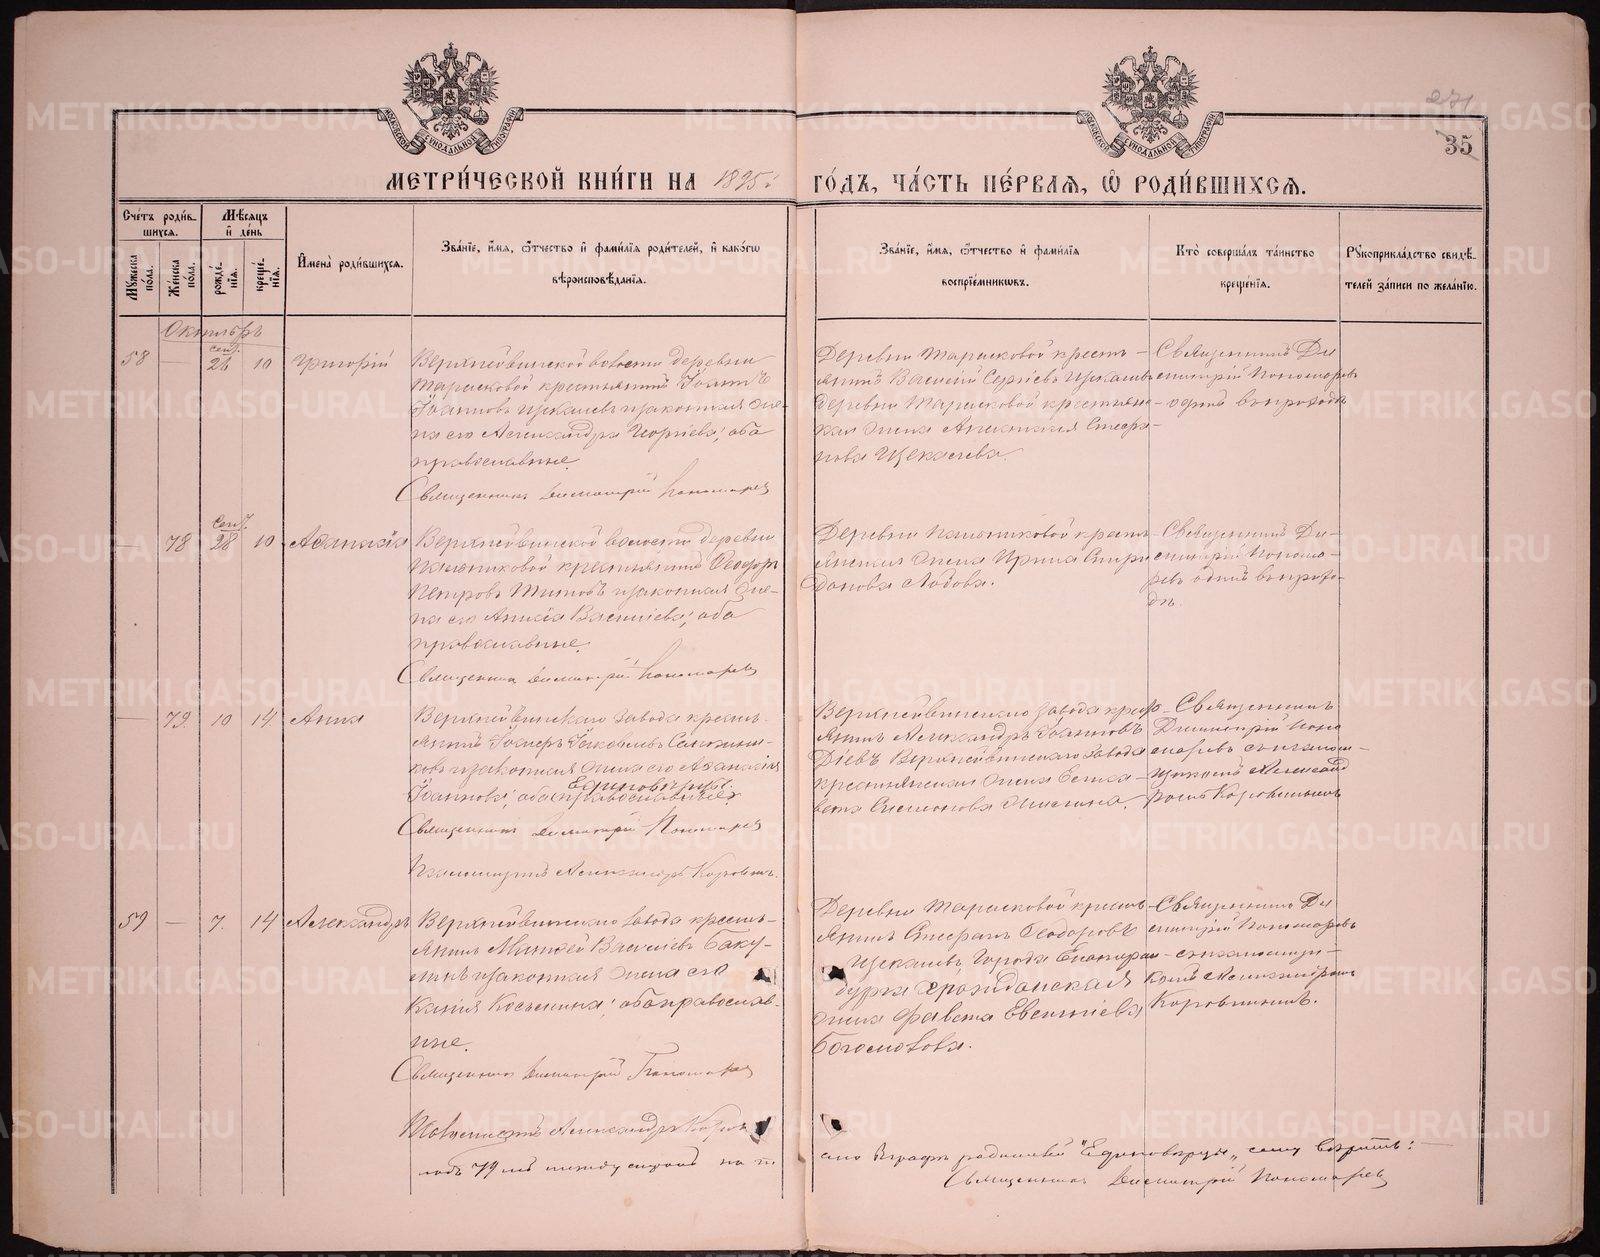 271
35
МОСКОВСКОЙ СѴНОДАЛЬНОЙ ТИПОГРАФІИ
МОСКОВСКОЙ СѴНОДАЛЬНОЙ ТИПОГРАФІИ
МЕТРИ́ЧЕСКОЙ КНИ́ГИ НА 1895й ГО́ДЪ, ЧА́СТЬ ПЕ́РВАЯ, Ѡ РОДИ́ВШИХСЯ.
Счетъ роди́в-
шихся.
Мѣсяцъ
и де́нь
Мужеска
по́ла.
Же́нска
по́ла.
рожде́-
нія.
креще́-
нія.
Имена̀ роди́вшихся.
Зва́ніе, и́мя, ѻ́тчество и фами́лія роди́телей, и како́гѡ
вѣроисповѣ́данія.
Зва́ніе, и́мя, ѻ́тчество и фами́лія
воспріе́мникѡвъ.
Кто̀ соверша́лъ та́инство
креще́нія.
Рукоприкла́дство свидѣ́-
телей за́писи по жела́нію.
Октябрь
58 — сент. 26 10 Григорій
Верхнейвинской волости деревни
Тарасковой крестьянинъ Іоаннъ
Іоанновъ Щекалевъ и законная же-
на его Александра Георгіева; оба
православные.
Священникъ Димитрій Пономаревъ
Деревни Тарасковой кресть-
янинъ Василій Сергіевъ Щекалевъ
деревни Тарасковой крестьянс-
кая жена Анастасія Стефа-
нова Щекалева.
Священникъ Ди-
митрій Пономаревъ
одинъ въ приходѣ
— 78 Сент. 28 10 Аѳанасія
Верхнейвинской волости деревни
Пальниковой крестьянинъ Ѳеодоръ
Петровъ Титовъ и законная же-
на его Анисія Васильева; оба
православные.
Священникъ Димитрій Пономаревъ
Деревни Пальниковой кресть-
янская жена Ирина Спири-
донова Лобова.
Священникъ Ди-
митрій Понома-
ревъ одинъ въ прихо-
дѣ.
— 79 10 14 Анна
Верхнейвинскаго завода кресть-
янинъ
Іаковлевъ
ковъ и законная жена его Аѳанасія
Единовѣрцы.
Іоаннова; оба православные.
Священникъ Димитрій Пономаревъ
Псаломщикъ Александръ Коровинъ.
Верхнейвинскаго завода кресть-
янинъ Александръ Іоанновъ
Діевъ Верхнейвинскаго завода
крестьянская жена Елиса-
вета Симеонова
Священникъ
Димитрій Поно-
маревъ съ псалом-
щикомъ Александ-
ромъ Коровинымъ
59 — 7. 14 Александръ
Верхнейвинскаго завода кресть-
янинъ Матѳей Васильевъ Баку-
линъ и законная жена его
Ксенія Косьмина; оба православ-
ные.
Священникъ Димитрій Пономаревъ
Псаломщикъ Александръ Коровинъ
Деревни Тарасковой кресть-
янинъ Стефанъ Ѳеодоровъ
Щекалевъ, Города Екатерин-
бурга гражданская
жена Фавста Евгеніева
Богомолова.
Священникъ Ди-
митрій Пономаревъ
съ псаломщи-
комъ Александромъ
Коровинымъ.
подъ 79 мъ между строкъ на п
сано въ графѣ родителей "Единовѣрцы" сему вѣрить: —
Священникъ Димитрій Пономаревъ
METRIKI.GASO-URAL.RU